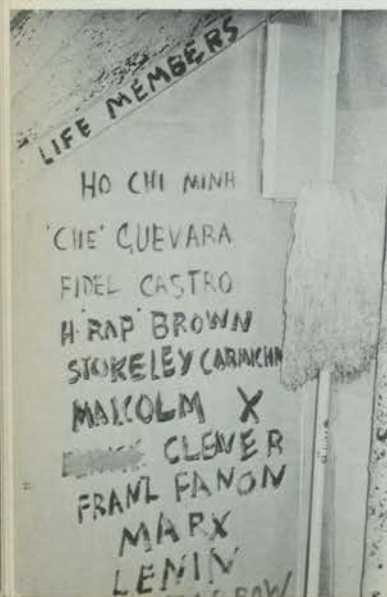 LIFE MEMBERS
HO CHI MINH
'CHE' GUEVARA
FIDEL CASTRO
H·'RAP' BROWN
STOKELEY CARMICHA
MALCOLM X
CLEVER
FRANZ FANON
MARX
LENIN